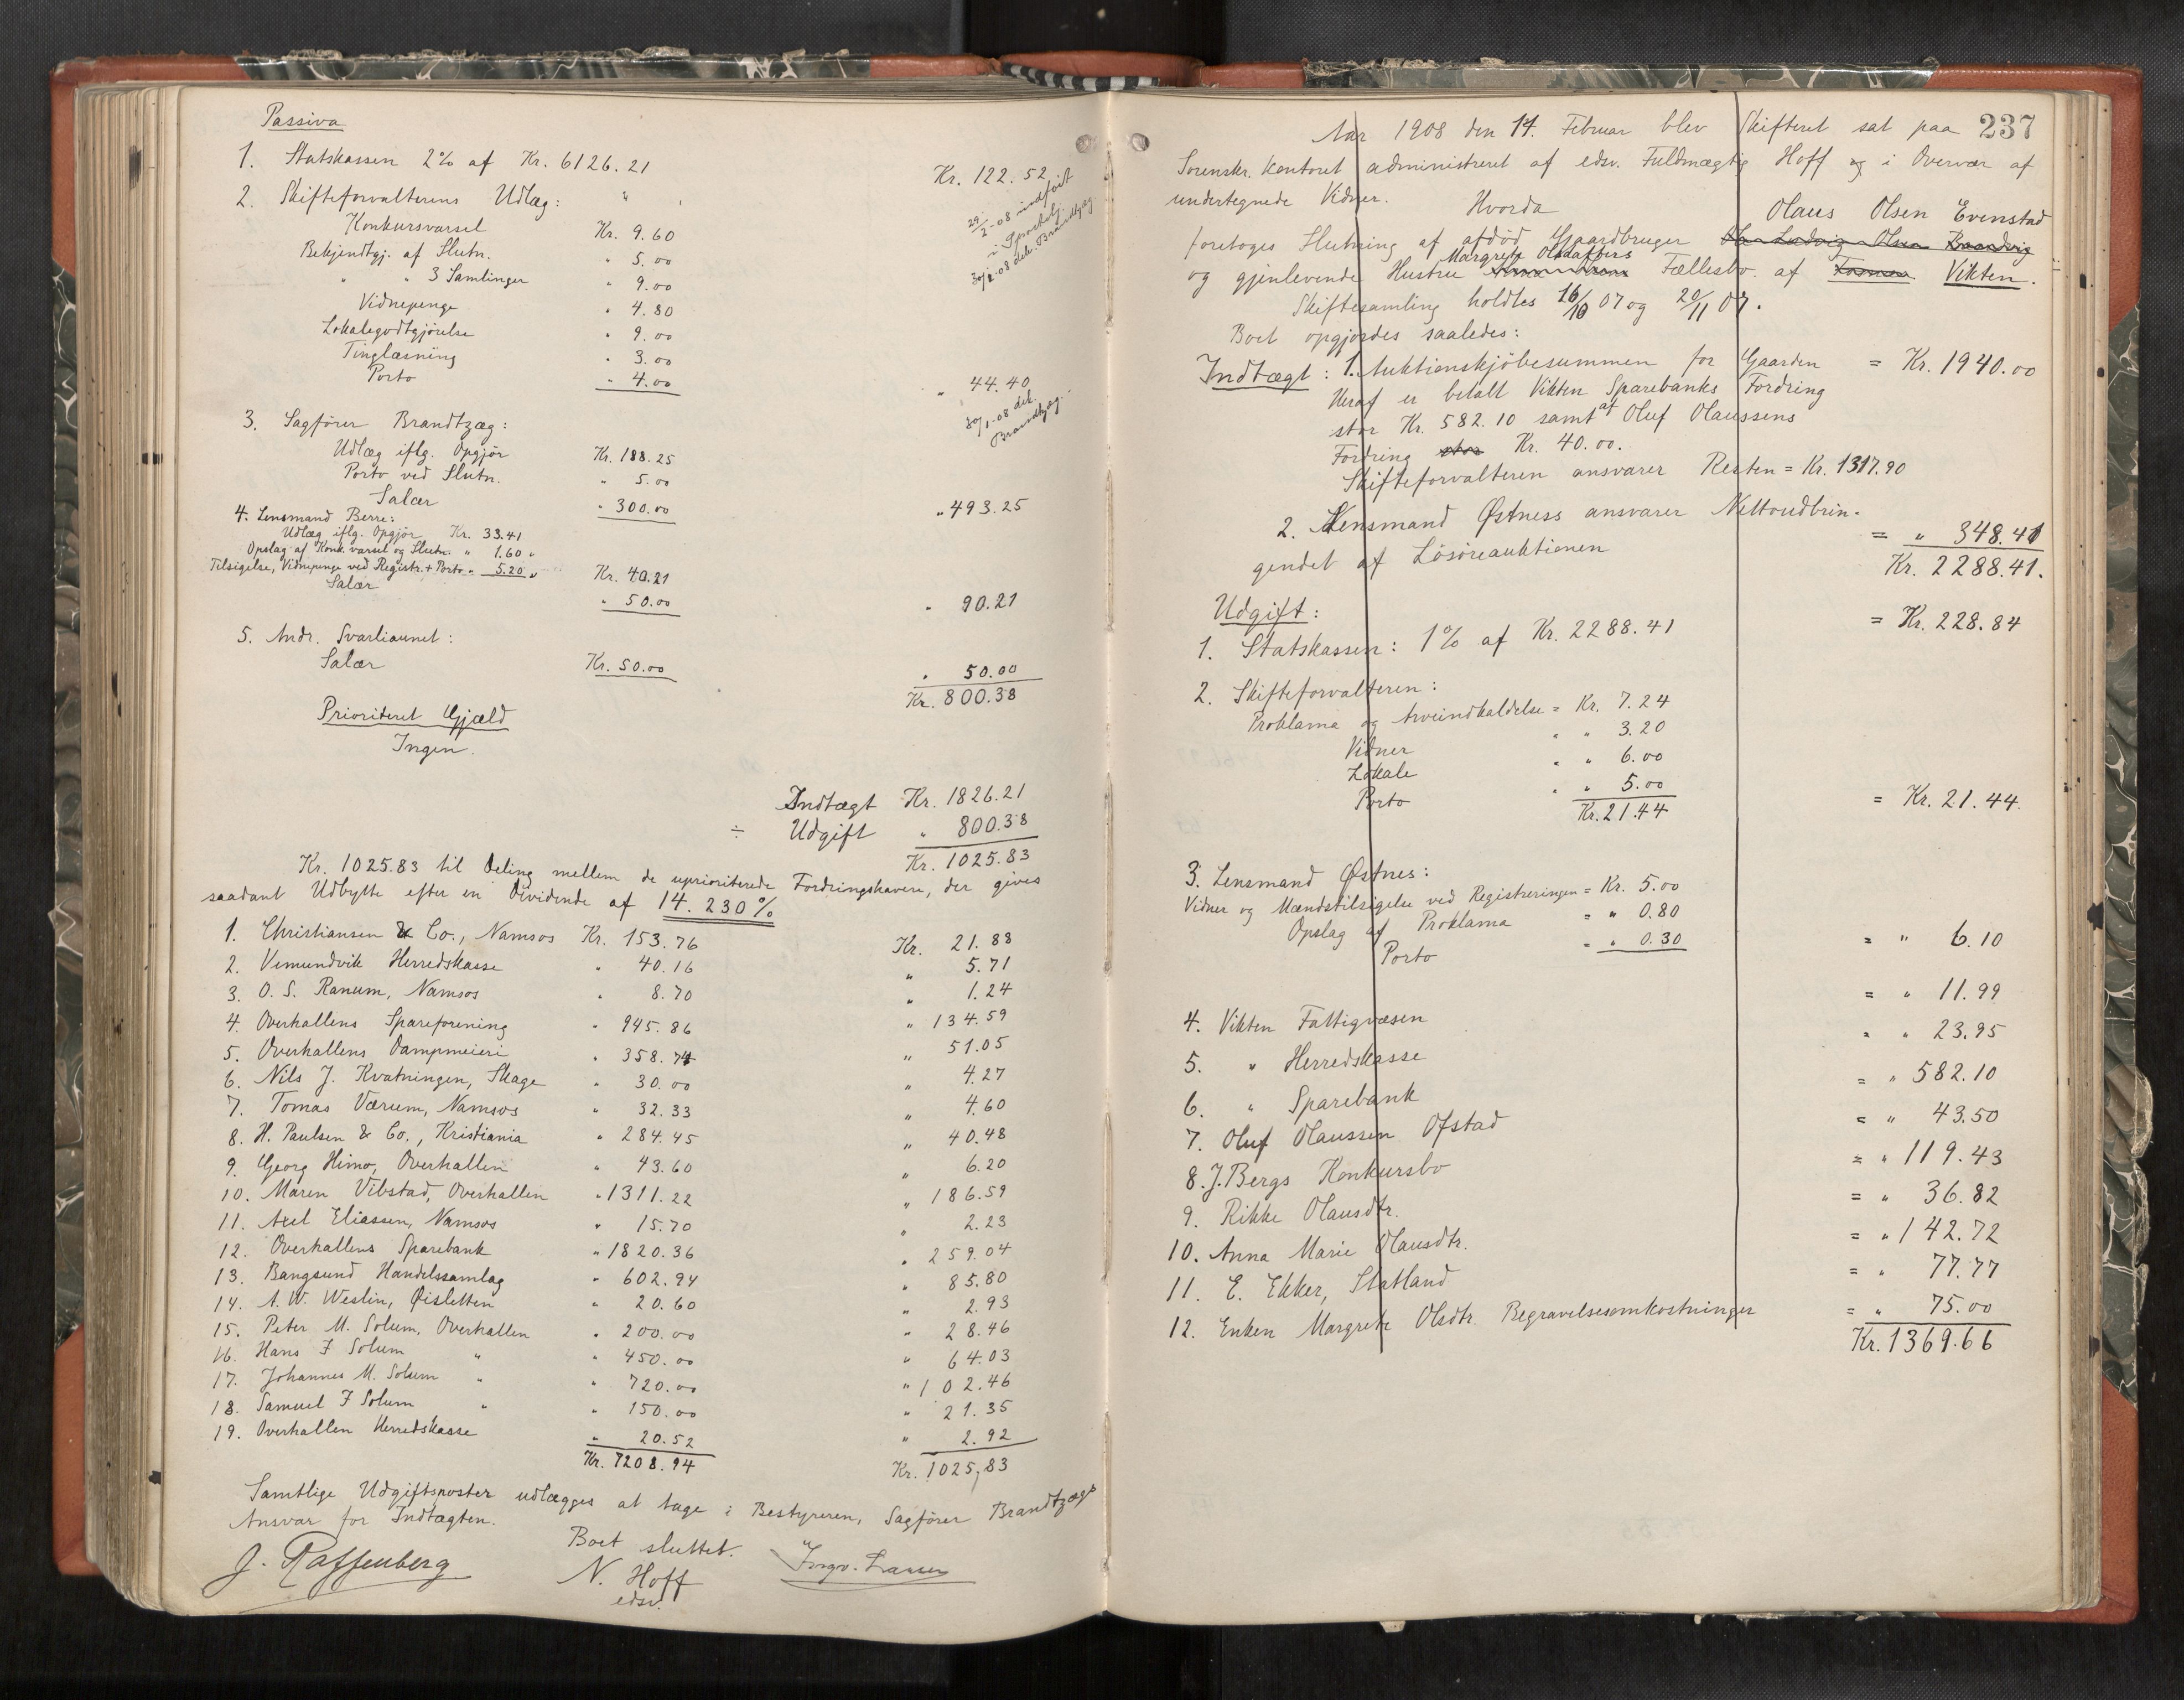 Passiva
1. Statskassen 2% af Kr. 6126.21 Kr. 122.52
2. Skifteforvalterens Udlæg:
29/2-08 indført i Sportelj.
30/1-08 dek. Brandtzæg
Konkursvarsel Kr. 9.60
Bekjendtgj. af Slutn. " 5.00
" " 3 Samlinger " 9.00
Vidnepenge " 4.80
Lokalegodtgjørelse " 9.00
Tinglæsning " 3.00
Porto " 4.00 " 44.40
30/1-08 dek. Brandtzæg.
3. Sagfører Brandtzæg:
Udlæg iflg. Opgjør Kr. 188.25
Porto ved Slutn. " 5.00
Salær " 300.00 " 493.25
4. Lensmand Berre:
Udlæg iflg. Opgjør Kr. 33.41
Opslag af Konk.varsel og Slutn. " 1.60 "
Tilsigelse, Vidnepenge ved Registr. + Porto " 5.20 " Kr. 40.21
Salær " 50.00 " 90.21
5. Andr. Svarliaunet:
Salær Kr. 50.00 " 50.00
Kr. 800.38
Prioriteret Gjæld
Ingen.
Indtægt Kr. 1826.21
÷ Udgift " 800.38
Kr. 1025.83
Kr. 1025.83 til Deling mellem de uprioriterede Fordringshavere, der gives
saadant Udbytte efter en Dividende af 14.230%
1. Christiansen & Co., Namsos Kr. 153.76 Kr. 21.88
2. Vemundvik Herredskasse " 40.16 " 5.71
3. O. S. Ranum, Namsos " 8.70 " 1.24
4. Overhallens Spareforening " 945.86 " 134.59
5. Overhallens Dampmeieri " 358.74 " 51.05
6. Nils J. Kvatningen, Skage " 30.00 " 4.27
7. Tomas Værum, Namsos " 32.33 " 4.60
8. H. Paulsen & Co., Kristiania " 284.45 " 40.48
9. Georg Himo, Overhallen " 43.60 " 6.20
10. Maren Vibstad, Overhallen " 1311.22 " 186.59
11. Axel Eliassen, Namsos " 15.70 " 2.23
12. Overhallens Sparebank " 1820.36 " 259.04
13. Bangsund Handelssamlag " 602.94 " 85.80
14. A. W. Weslin, Øisletten " 20.60 " 2.93
15. Peter M. Solum, Overhallen " 200.00 " 28.46
16. Hans F Solum " " 450.00 " 64.03
17. Johannes M. Solum " " 720.00 " 102.46
18. Samuel F Solum " " 150.00 " 21.35
19. Overhallen Herredskasse " 20.52 " 2.92
Kr. 7208.94 Kr. 1025,83
Samtlige Udgiftsposter udlægges at tage i Bestyreren, Sagfører Brandtzægs
Ansvar for Indtægten.
Boet sluttet.
J. Raffenberg N. Hoff Ingv. Larsen
edsv.
237
Aar 1908 den 14. Februar blev Skifteret sat paa
Sorenskr. kontoret administreret af edsv. Fuldmægtig Hoff og i Overvær af
undertegnede Vidner. Hvorda
Olaus Olsen Evenstad
foretoges Slutning af afdød Gaardbruger Ole Ludvig Olsen Baandvig
Margrete Olsdatters
og gjenlevende Hustru Fællesbo af Fosnes Vikten.
Skiftesamling holdtes 16/10 07 og 20/11 07.
Boet opgjordes saaledes:
Indtægt: 1. Auktionskjøbesummen for Gaarden = Kr. 1940.00
Heraf er betalt Vikten Sparebanks Fordring
stor Kr. 582.10 samt af Oluf Olaussens
Fordring stor Kr. 40.00.
Skifteforvalteren ansvarer Resten = Kr. 1317.90
2. Lensmand Østness ansvarer Nettoudbrin-
gendet af Løsøreauktionen = " 348.41
Kr. 2288.41.
Udgift:
1. Statskassen: 1% af Kr. 2288.41 = Kr. 228.84
2. Skifteforvalteren:
Proklama og Arveindkaldelse = Kr. 7.24
Vidner " " 3.20
Lokale " " 6.00
Porto " " 5.00
Kr. 21.44 = Kr. 21.44
3. Lensmand Østnes:
Vidner og Mændstilsigelse ved Registreringen = Kr. 5.00
Opslag af Proklama = " 0.80
Porto = " 0.30 = " 6.10
4. Vikten Fattigvæsen = " 11.99
5. " Herredskasse " " 23.95
6. " Sparebank = " 582.10
7. Oluf Olaussen Ofstad = " 43.50
8. J. Bergs Konkursbo = " 119.43
9. Rikke Olausdtr. = " 36.82
10. Anna Marie Olausdtr. = " 142.72
11. E. Ekker, Statland = " 77.77
12. Enken Margrete Olsdtr. Begravelsesomkostninger = " 75.00
Kr. 1369.66